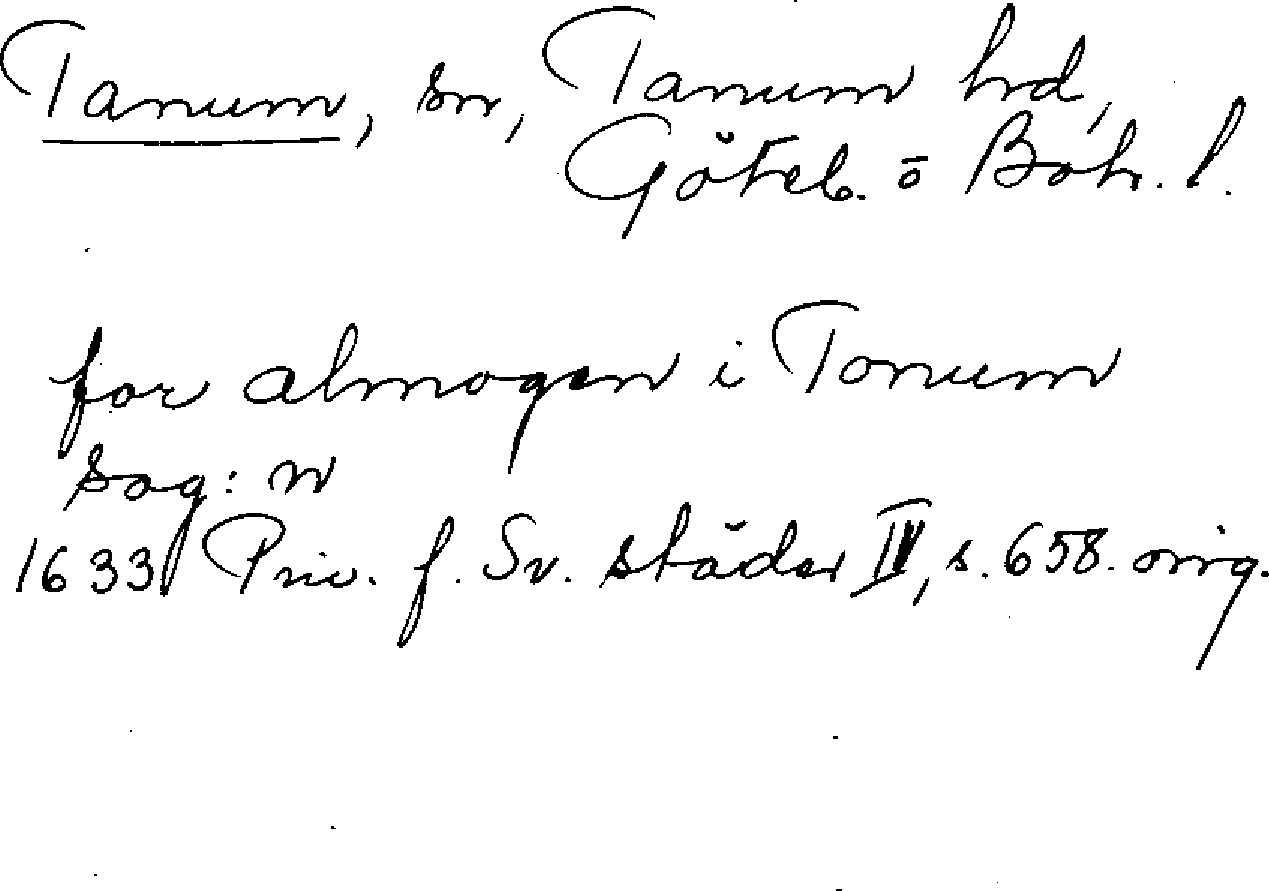 Tanum, sn, Tanum hrd,
Göteb. o Boh. l.
for almogen i Tonum
sog: n
1633 Priv. f. Sv. städer IV, s. 658. orig.